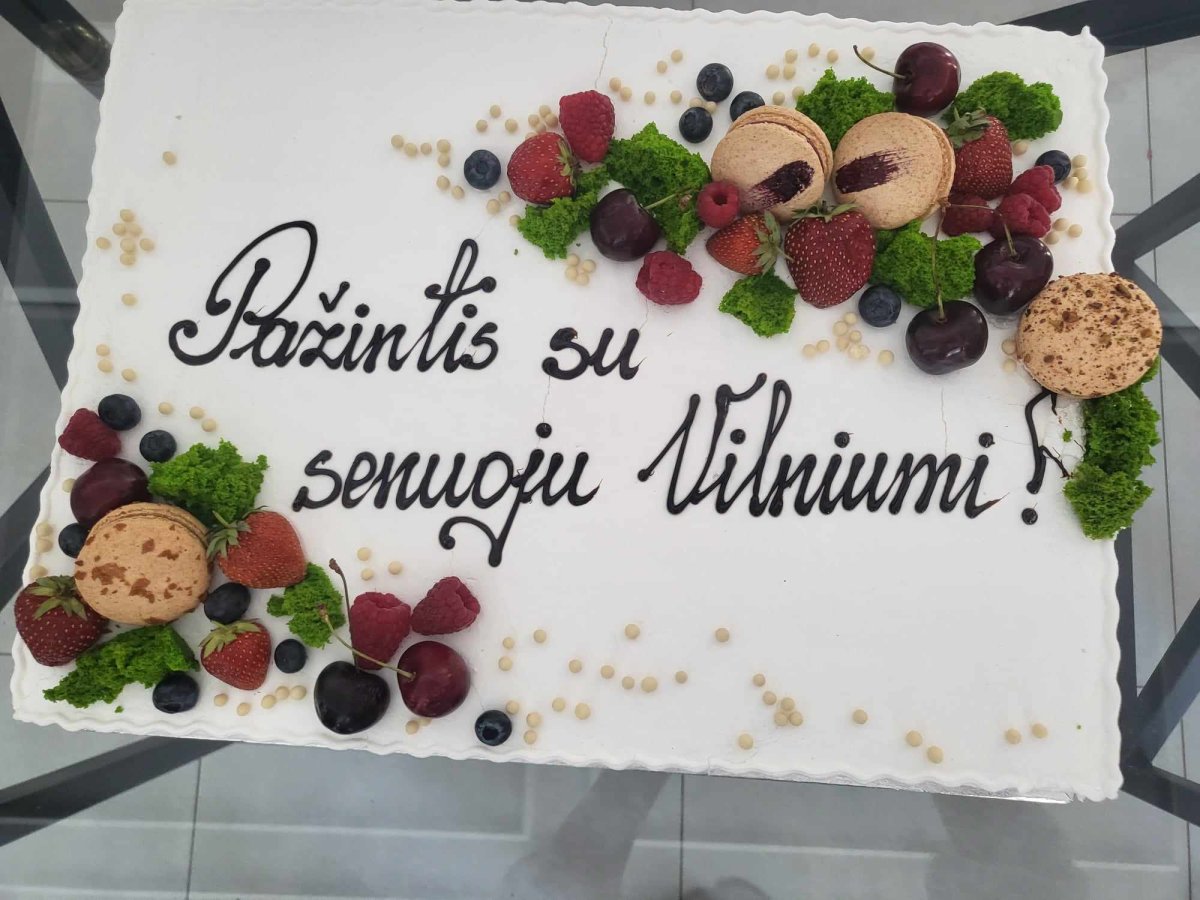 Pažintis su
senuoju Vilniumi!